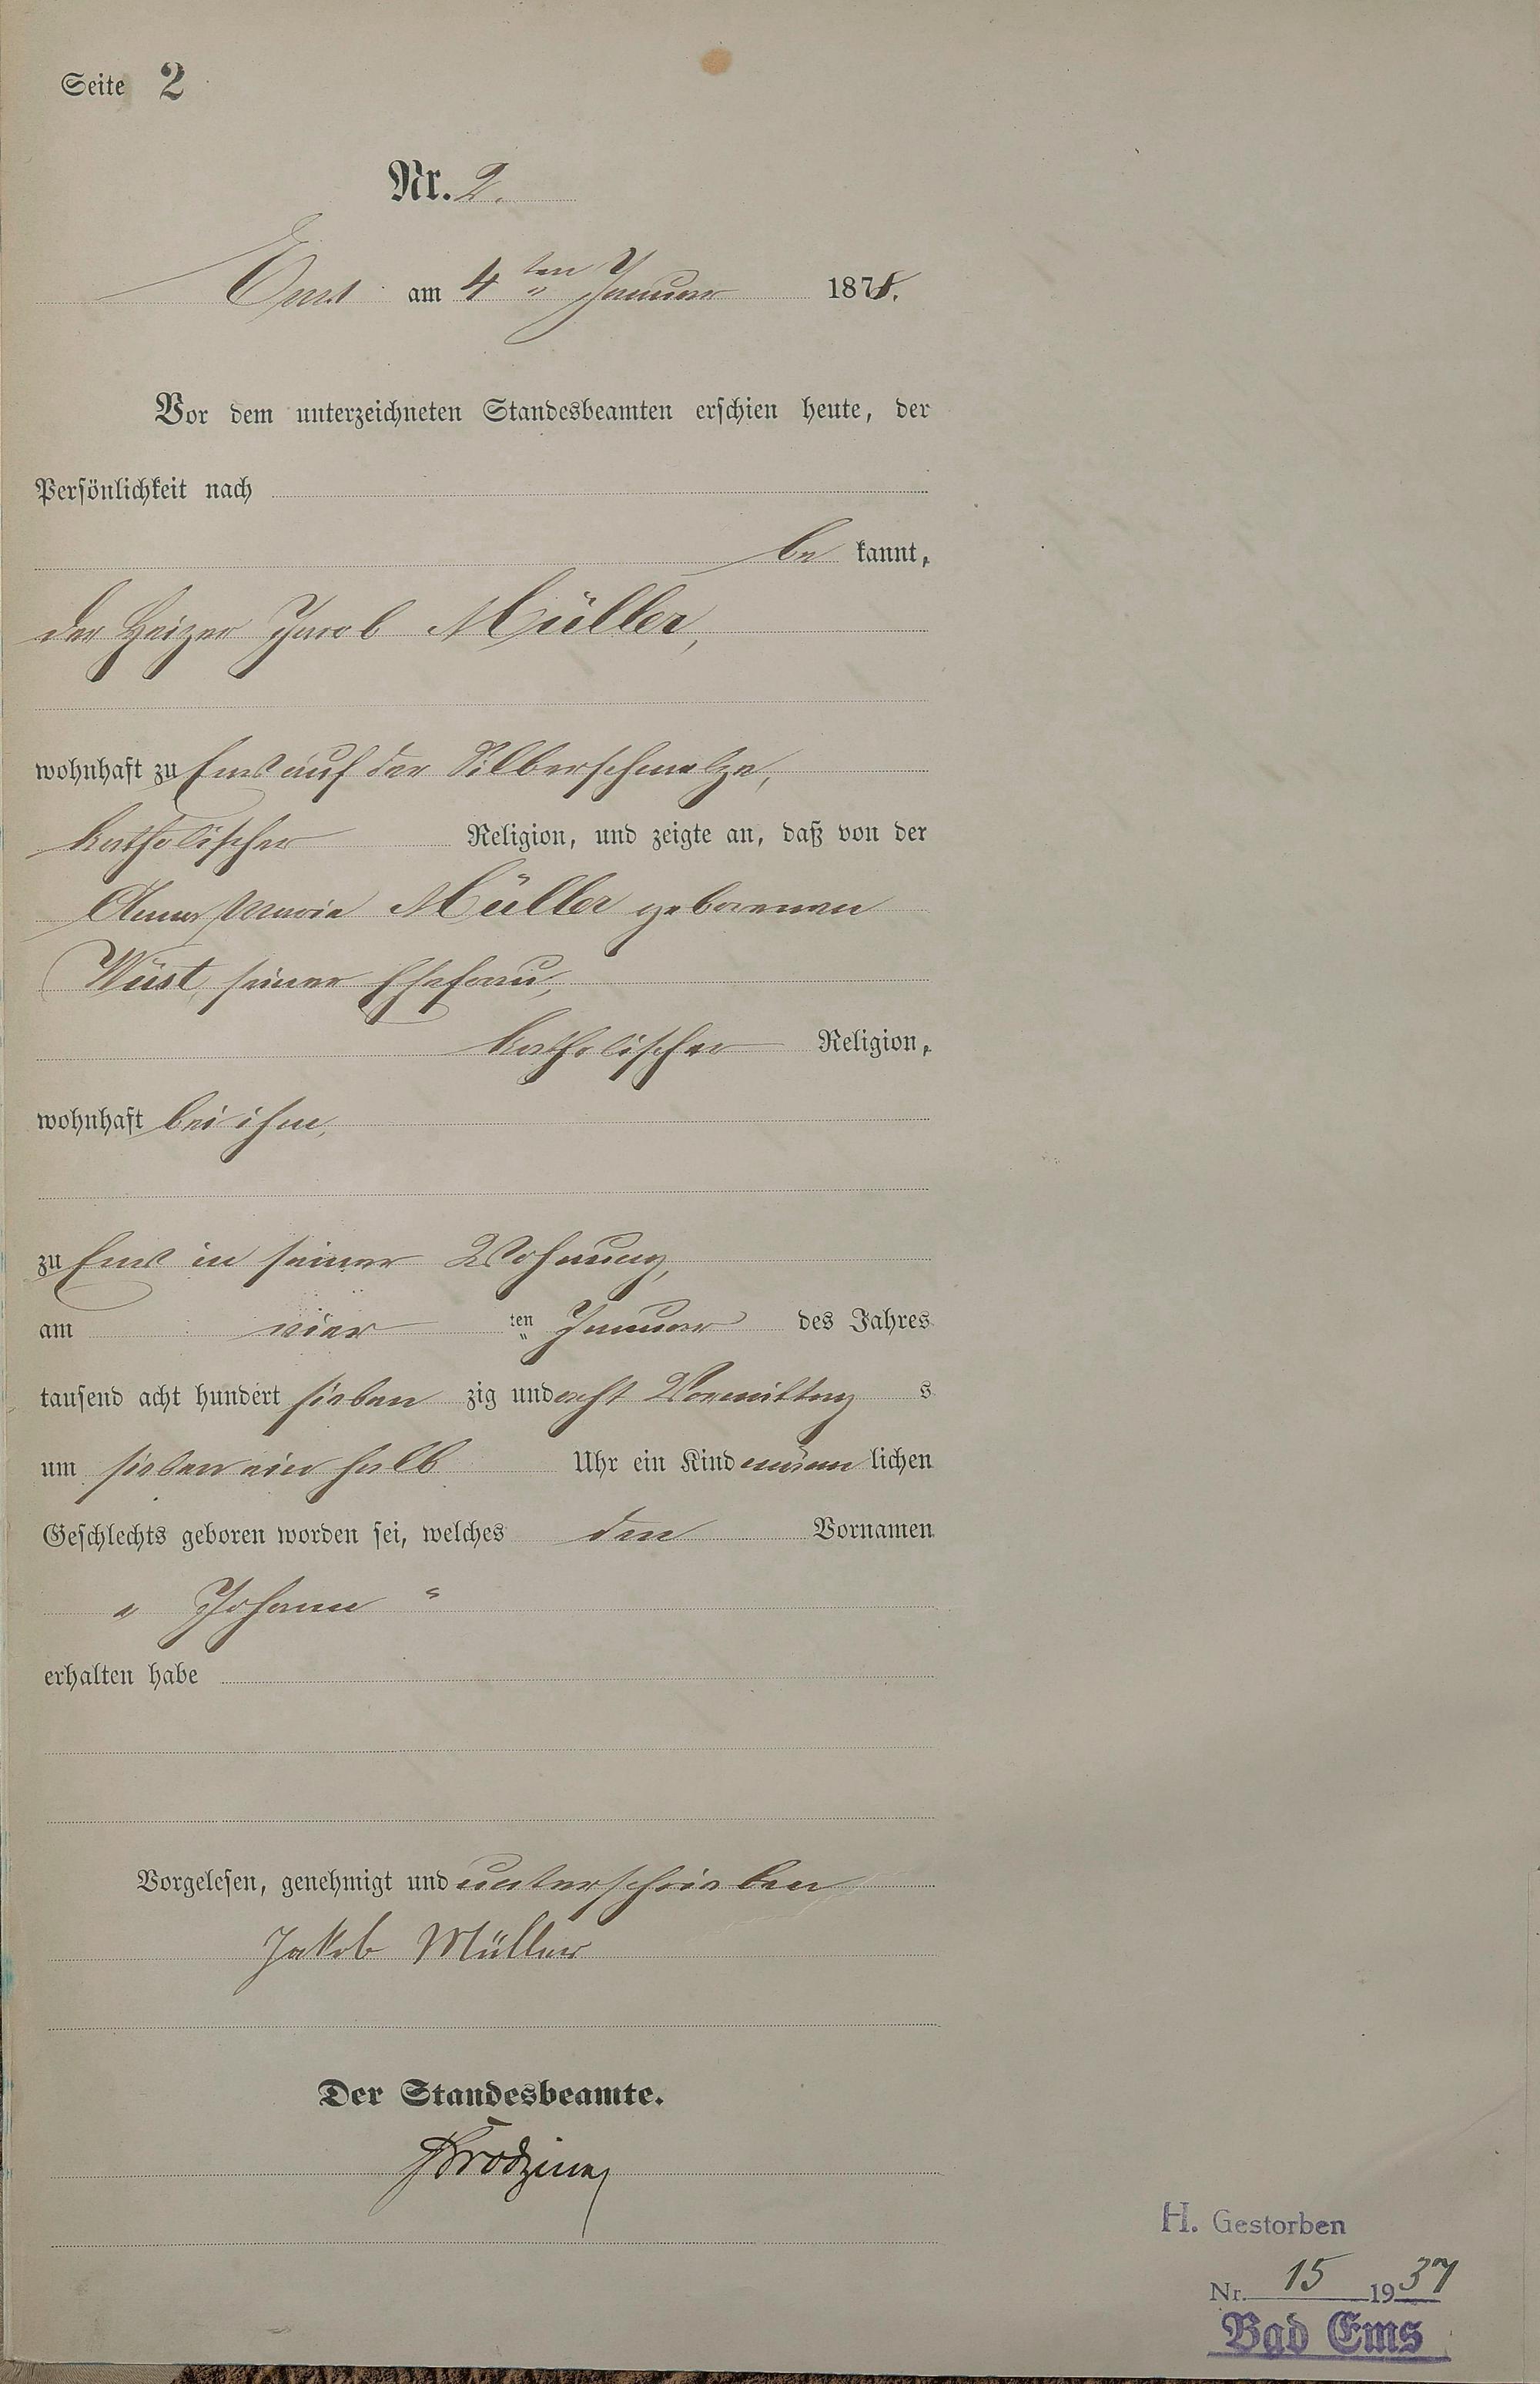 Seite 2
Nr. 2.
Ems am 4ten Januar 1878.
Vor dem unterzeichneten Standesbeamten erschien heute, der
Persönlichkeit nach
be kannt,
der Heizer Jacob Müller,
wohnhaft zu Ems auf der Silberschmelze,
katholischer Religion, und zeigte an, daß von der
Anna Maria Müller geborenen
Wüst, seiner Ehefrau,
katholischer Religion,
wohnhaft bei ihm,
zu Ems in seiner Wohnung,
am vier ten Januar des Jahres
tausend acht hundert sieben zig und acht Vormittag s
um sieben ein halb Uhr ein Kind männ lichen
Geschlechts geboren worden sei, welches den Vornamen
" Johann "
erhalten habe
Vorgelesen, genehmigt und unterschrieben
Jakob Müller
Der Standesbeamte.
H. Gestorben
Nr. 15 1937
Bad Ems